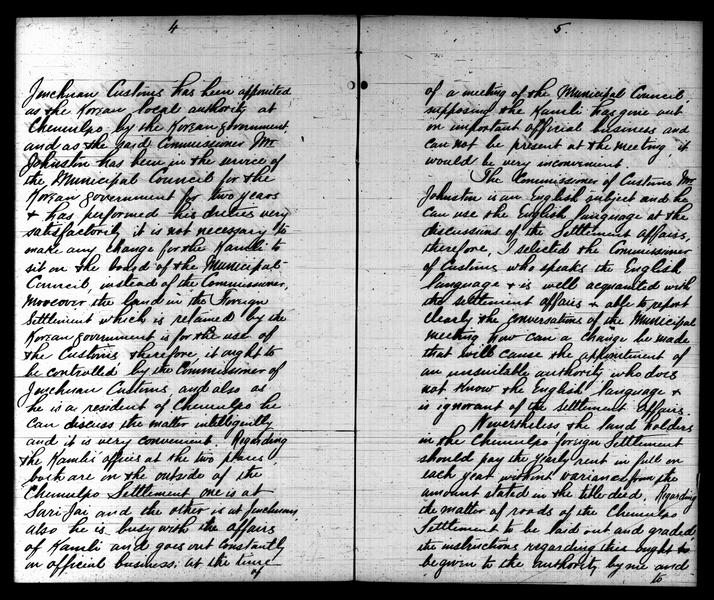 4
Jenchuan Customs has been appointed
as the Korean local authority at
Chemulpo, by the Korean government,
and as the said Commissioner Mr
Johnston has been in the service of
the Municipal Council for the
Korean government for two years
+ has performed his duties very
satisfactorily it is not necessary to
make any change for the Kamli to
sit on the board of the Municipal
Council, instead of the Commissioner,
Moreover the land in the Foreign
Settlement which is retained by the
Korean government is for the use of
the Customs therefore it ought to
be controlled by the Commissioner of
Jenchuan Customs and also as
he is a resident of Chemulpo he
can discuss the matter intelligently
and it is very convenient. Regarding
the Kamli offices at the two places,
both are on the outside of the
Chemulpo Settlement one is at
and the other is at Jenchuan,
also he is busy with the affairs
of Kamli and goes out constantly
on official business; at the time
of
5
of a meeting of the Municipal Council,
supposing the Kamli has gone out
on important official business and
can not be present at the meeting it
would be very inconvenient.
The Commissioner of Customs Mr
Johnston is an English subject and he
can use the English language at the
discussions of the Settlement affairs,
therefore, I selected the Commissioner
of Customs who speaks the English
language + is well acquainted with
the settlement affairs + able to report
clearly the conversations of the Municipal
meeting, how can a change be made
that will cause the appointment of
an unsuitable authority who does
not know the English language +
is ignorant of the Settlement Affairs.
Nevertheless the land holders
in the Chemulpo foreign Settlement
should pay the yearly rent in full on
each year without variance from the
amount stated in the title deed. Regarding
the matter of roads of the Chemulpo
Settlement to be laid out and graded,
the instructions regarding this ought to
be given to the authority by me and
to